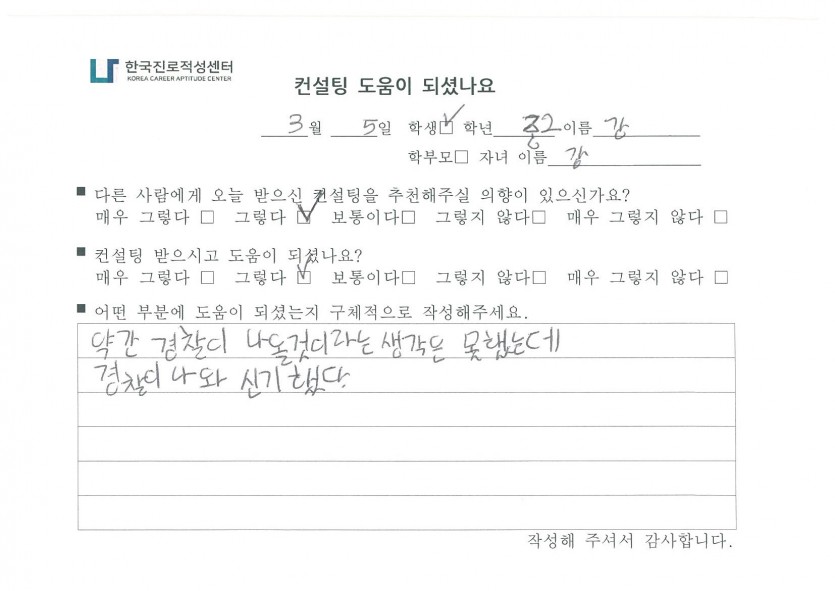 한국진로적성센터
KOREA CAREER APTITUDE CENTER
컨설팅 도움이 되셨나요
3월 5일 학생☑ 학년 중2 이름 강
학부모□ 자녀 이름 강
■ 다른 사람에게 오늘 받으신 컨설팅을 추천해주실 의향이 있으신가요?
매우 그렇다 □ 그렇다 ☑ 보통이다□ 그렇지 않다□ 매우 그렇지 않다 □
■ 컨설팅 받으시고 도움이 되셨나요?
매우 그렇다 □ 그렇다 ☑ 보통이다□ 그렇지 않다□ 매우 그렇지 않다 □
■ 어떤 부분에 도움이 되셨는지 구체적으로 작성해주세요.
약간 경찰이 나올것이라는 생각은 못했는데
경찰이 나와 신기했다.
작성해 주셔서 감사합니다.